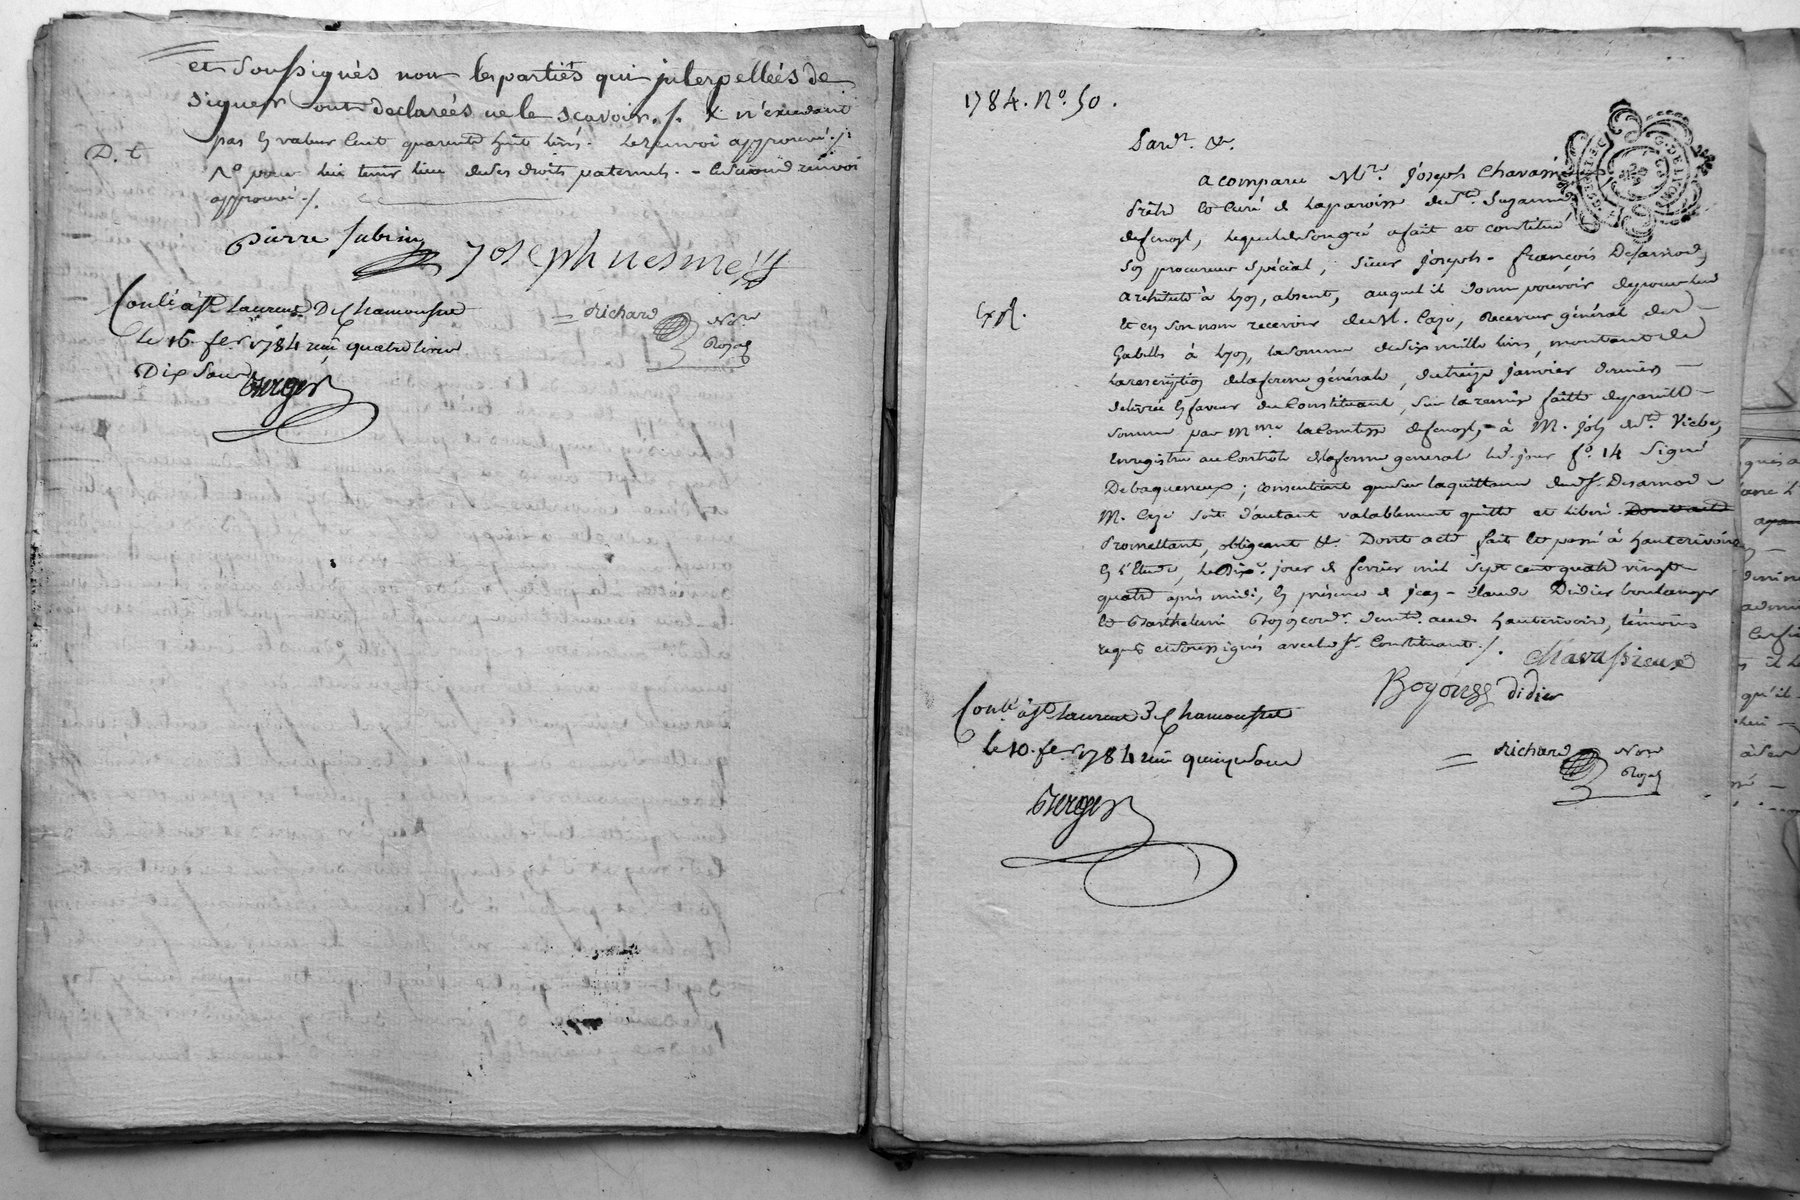 et soussignés non les parties qui interpellées de
signer ont declarées ne le scavoir./. X n'excedant
pas en valeur cent quarante huit livres. le renvoi approuvé./.
D. t
pour lui tenir lieu de ses droits paternels. - le second renvoi
approuvé./.
pierre
joseph
Conlé à st laurent De Chamousset
le 16. fer 1784 reçu quatre livres
Dix sous
Berger
Richard Nore
Royal
1784. No. 50.
Pardt. &c.
G. DE LYON
a comparu Mre. Joseph
Prêtre et Curé de la paroisse de Ste. Suzanne
de fenoyl, lequel de son gré a fait et constitué
son procureur spécial, sieur Joseph-françois Desarnod,
architecte à Lyon, absent, auquel il donne pouvoir de pour lui
Exp.
et en son nom recevoir de M. Caze, Receveur général des
Gabelles à Lyon, la somme de six mille livres, montant de
la rescription de la ferme générale, du treize janvier dernier
délivrée en faveur du Constituant, sur la remise faitte de pareille
somme par Mme. la Comtesse de fenoyl, à M. Joly de
Enregistrée au Contrôle de la ferme generale led. jour fo. 14 Signé
Debaquencux; consentant que sur la quittance dud. s. Desarnod
M. Caze soit d'autant valablement quitte et libéré. Dont acte
Promettant, obligeant &c. Dont acte fait et passé à hauterivoire
en l'Etude, le Dixe. jour de fevrier mil sept cent quatre vingt
quatre après midi, en présence de Jean-Claude Didier boulanger
et Barthelemi cordr. demts. aud. hauterivoire, témoins
requis et soussignés avec led. sr. Constituant./.
Chavassieux
didier
Conlé à st laurent De Chamousset
le 10. fer 1784 reçu quinze sous
Berger
Richard Nore
Royal